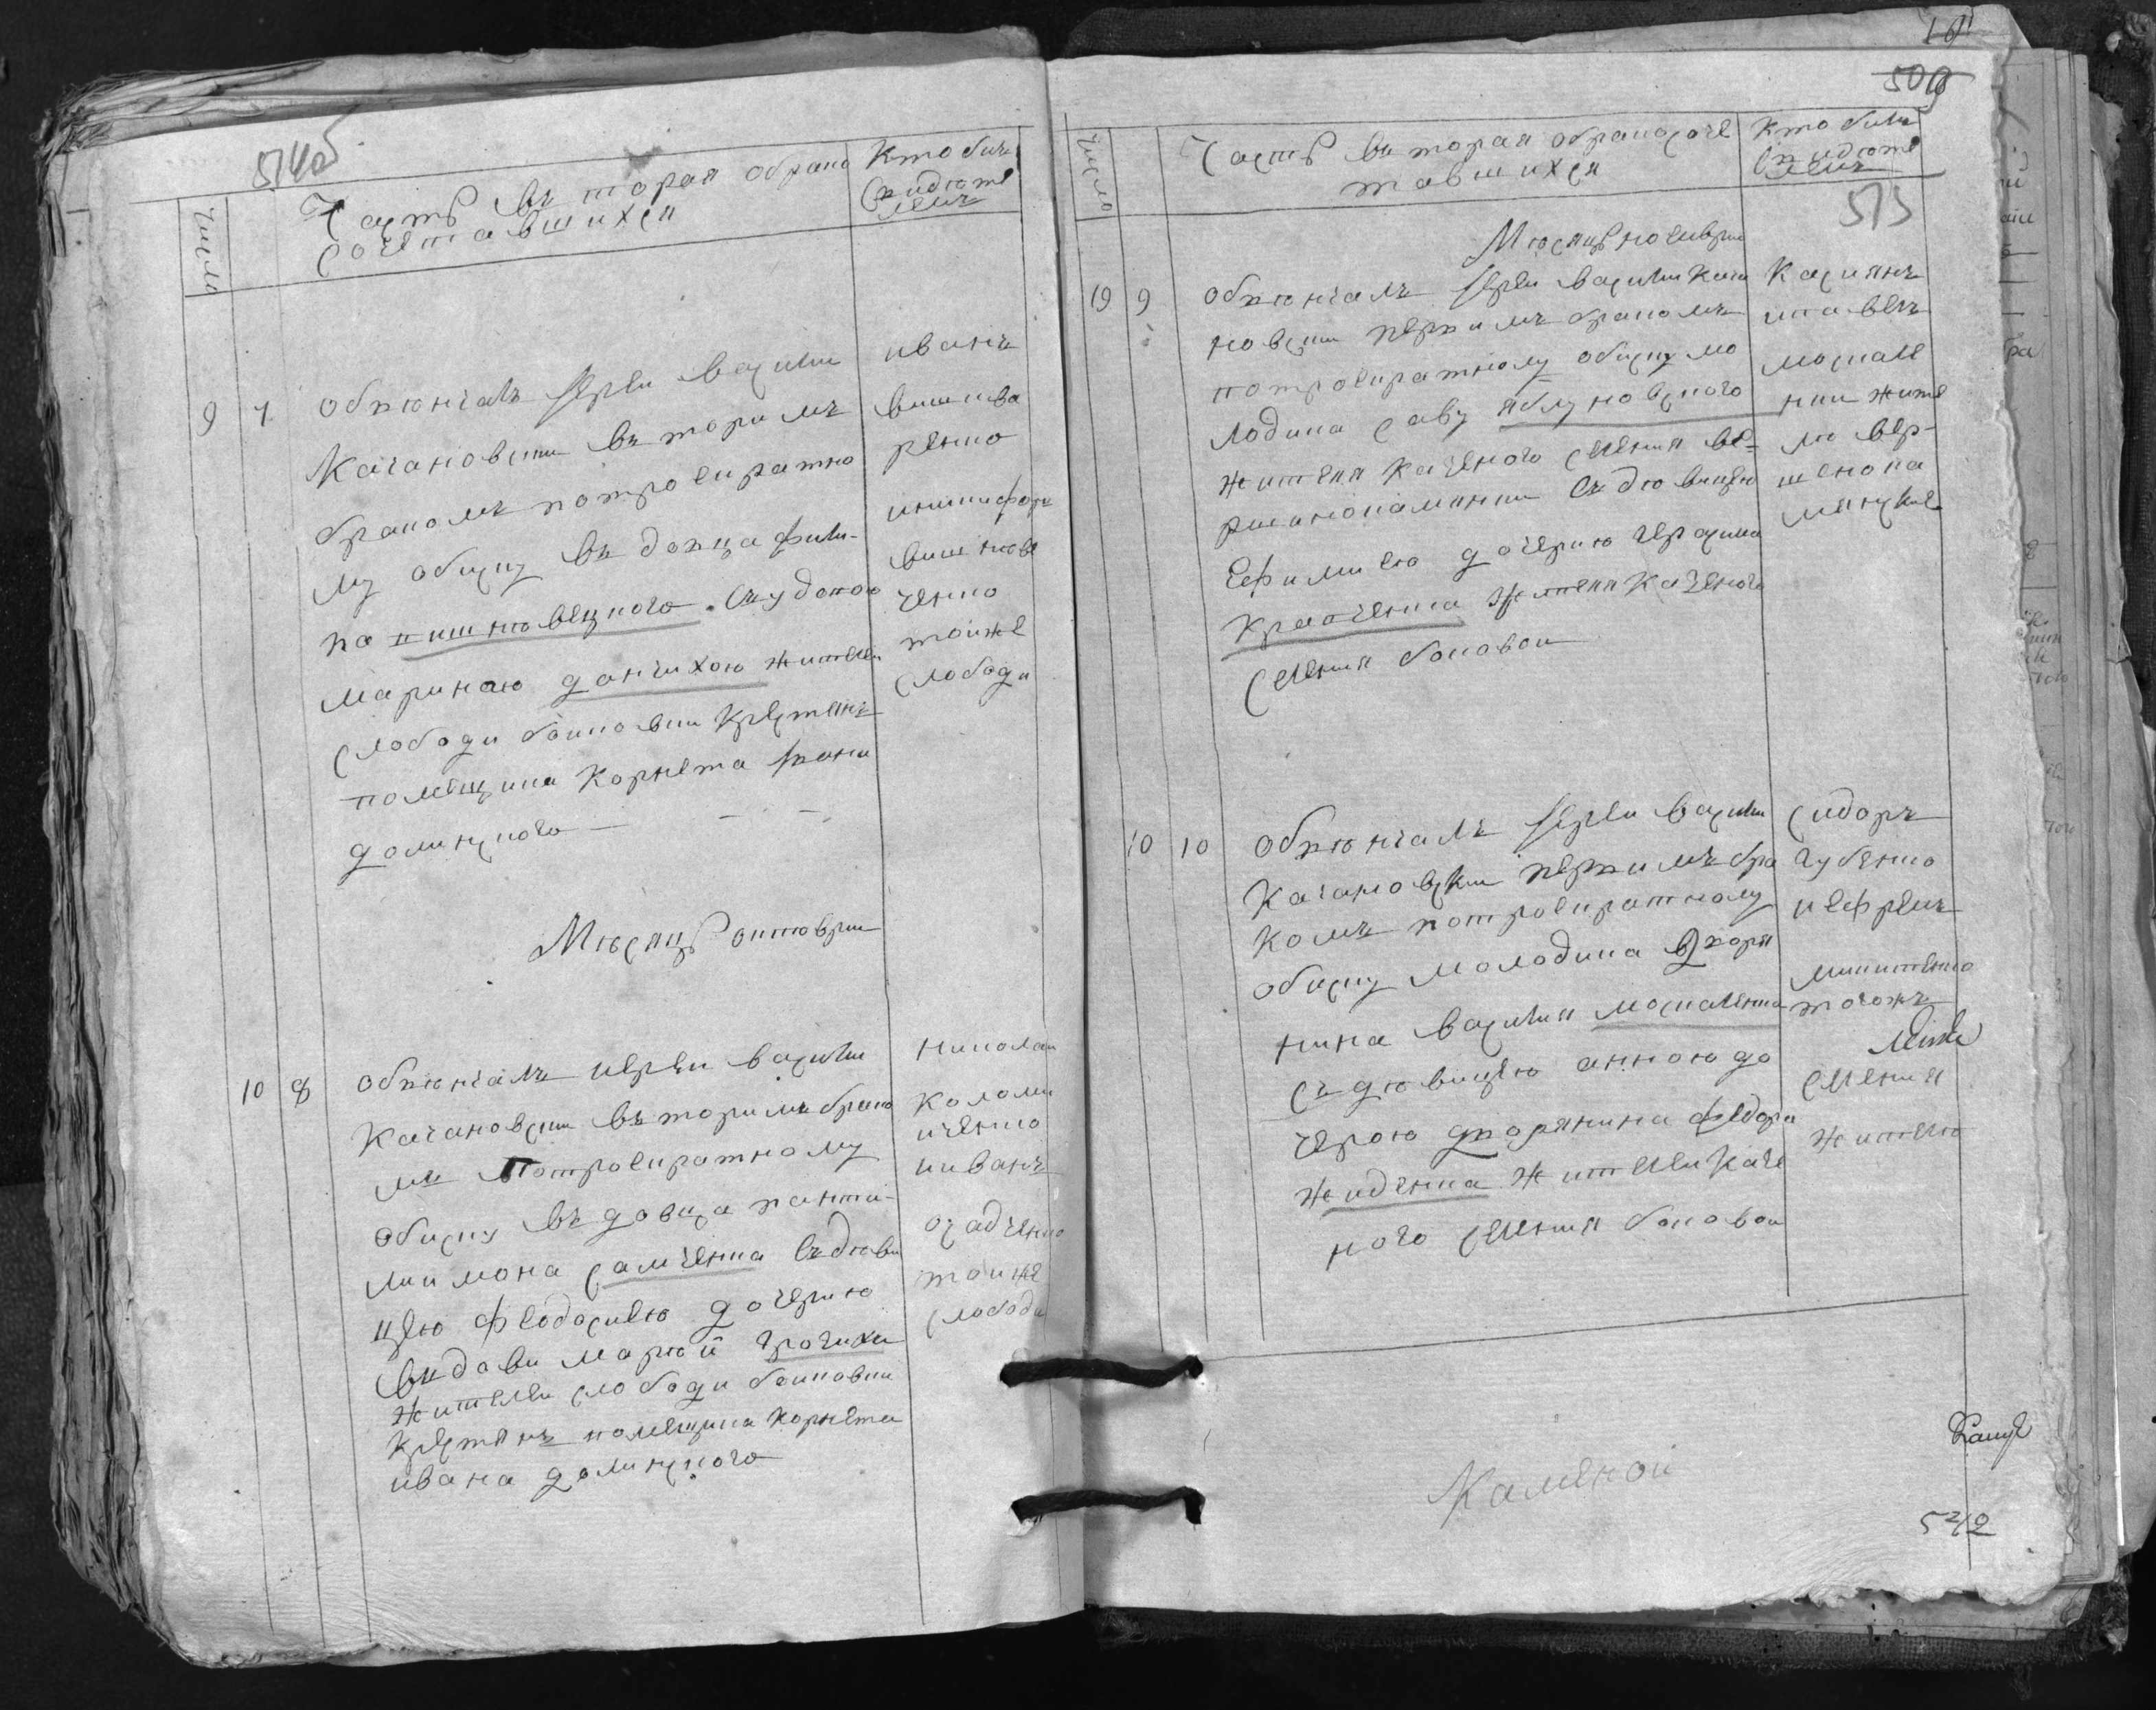 514об
Число
Часть въ торая обрако
сочетавшихся
Кто били
свидете
лемъ
9 7 Обвенчалъ Иерей василий
Качановский въ торимъ
бракомъ потроекратно
му обиску въ довца фили
па вишневецкого съ удовою
мариною данчихою жители
слободи боиковки Крестянъ
помещика Корнета Ивана
долинского
иванъ
вишнева
ренко
никифоръ
вишневе
ченко
тоиже
слободи
Месяцъ октоврии
10 8 обвенчалъ иереи василии
качановски въ торимъ брако
мъ потроекратному
обиску въ довца панти
лиимона самченка съ деви
цею феодосиею дочерию
въдови марии грочихи
жители слободи боиковки
Крестянъ помещика корнета
ивана долинского
николаи
коломи
иченко
ииванъ
осадченко
тоиже
слободи
18
509
515
Число
Часть въ торая обракосоче
тавшихся
Кто били
свидете
лемъ
Месяцъ ноиеврии
19 9 Обвенчалъ Иереи василии Кача
новски первимъ бракомъ
потроекратному обиску мо
лодика саву яблуновского
жителя казеного селения ве
ршинокаменки съ девицею
Ефимиею дочерию герасима
кравченка жителя Казеного
селения боковои
Касиянъ
ипавелъ
москале
нки жите
ли вер
шенока
менские
10 10 Обвенчалъ Иереи василии
Качановски первимъ бра
комъ потроекратному
обиску молодика дворя
нина василия москаленка
съ девицею анною до
черою дворянина федора
жидченка жители казе
ного селения боковои
сидоръ
губенко
иефремъ
никитенко
тогожъ
селения
жителе
Каменои
542